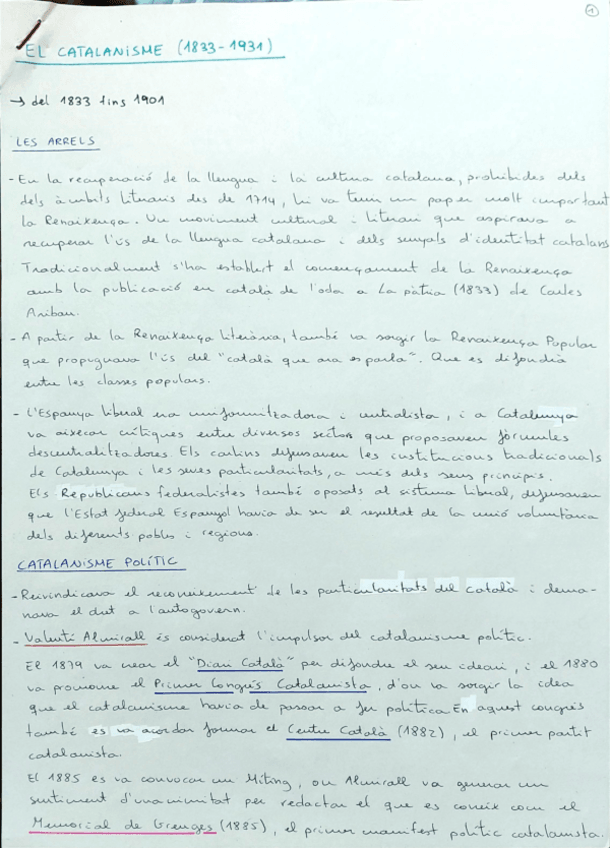 1
EL CATALANISME (1833-1931)
→ del 1833 fins 1901
LES ARRELS
- En la recuperació de la llengua i la cultura catalana, prohibides dels
dels àmbits literaris des de 1714, hi va tenir un paper molt important
la Renaixença. Un moviment cultural i literari que aspirava a
recuperar l'ús de la llengua catalana i dels senyals d'identitat catalans
Tradicionalment s'ha establert el començament de la Renaixença
amb la publicació en català de l'oda a La pàtria (1833) de Carles
Aribau.
- A partir de la Renaixença literària, també va sorgir la Renaixença Popular
que propugnava l'ús del "català que ara es parla". Que es difondrà
entre les classes populars.
- L'Espanya liberal era uniformitzadora i centralista, i a Catalunya
va aixecar crítiques entre diversos sectors que proposaven fórmules
descentralitzadores. Els carlins defensaven les institucions tradicionals
de Catalunya i les seves particularitats, a més dels seus principis.
Els Republicans federalistes també oposats al sistema liberal, defensaven
que l'Estat federal Espanyol havia de ser el resultat de la unió voluntària
dels diferents pobles i regions.
CATALANISME POLÍTIC
- Reivindicava el reconeixement de les particularitats del català i dema-
nava el dret a l'autogovern.
- Valentí Almirall és considerat l'impulsor del catalanisme polític.
El 1879 va crear el "Diari Català" per difondre el seu ideari, i el 1880
va promoure el Primer Congrés Catalanista, d'on va sorgir la idea
que el catalanisme havia de passar a fer política En aquest congrés
també es va acordar formar el Centre Català (1882), el primer partit
catalanista.
El 1885 es va convocar un Míting, on Almirall va generar un
sentiment d'unanimitat per redactar el que es coneix com el
Memorial de Greuges (1885), el primer manifest polític catalanista.